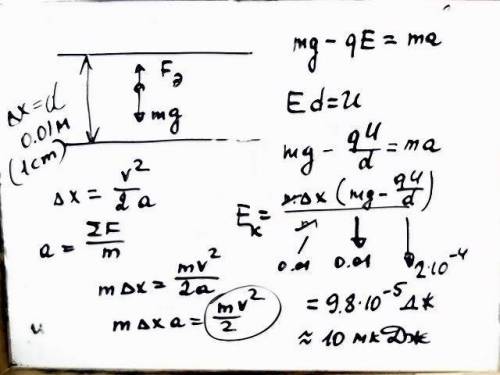 Δx = d
0.01м
(1cm)
Fэ
mg
Δx = v²/2a
a = ΣF/m
m Δx = mv²/2a
m Δx a = mv²/2
mg - qE = ma
Ed = U
mg - qU/d = ma
Eк = m·Δx (mg - qU/d)/m
0.01 0.01 2·10⁻⁴
= 9.8·10⁻⁵ Дж
≈ 10 мкДж